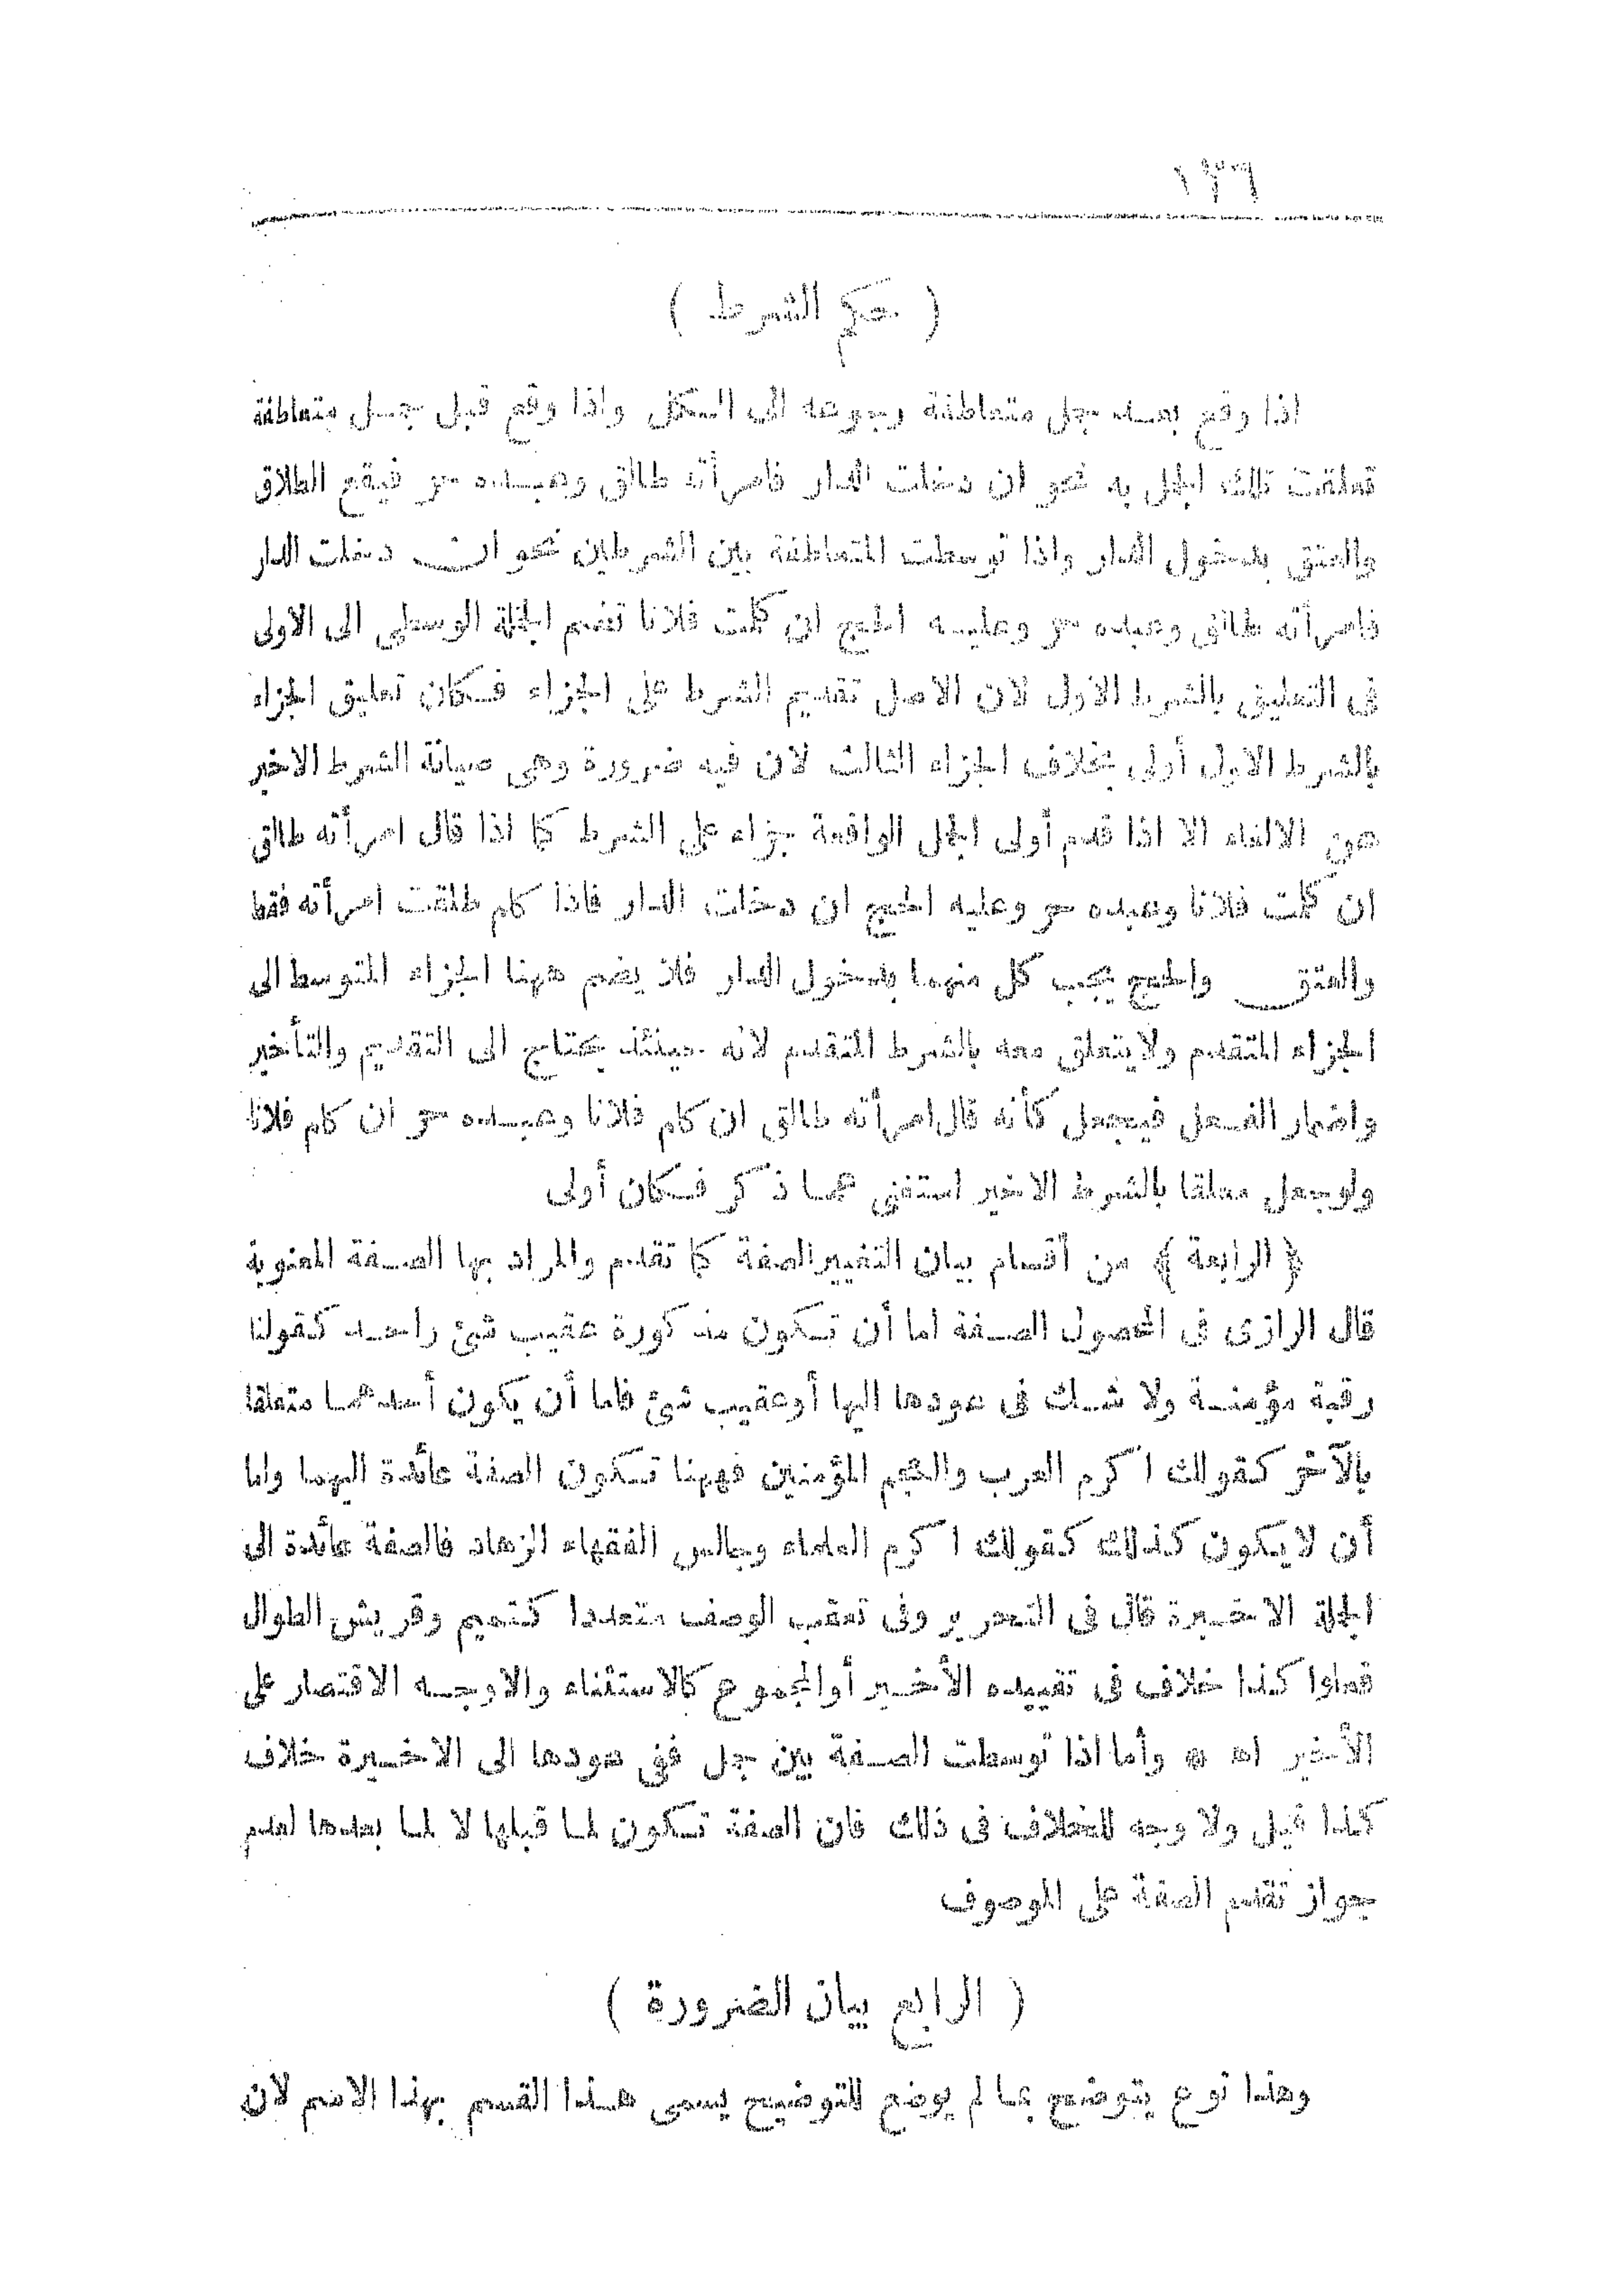 ١٣٦
( حكم الشرط )
اذا وقع بعد جمل متعاطفة رجوعه الى الكل واذا وقع قبل جمل متعاطفة
تعلقت تلك الجمل به نحو ان دخلت الدار فامرأته طالق وعبده حر فيقع الطلاق
والعتق بدخول الدار واذا توسطت المتعاطفة بين الشرطين نحو ان دخلت الدار
فامرأته طالق وعبده حر وعليه الحج ان كلمت فلانا تضم الجملة الوسطى الى الاولى
فى التعليق بالشرط الاول لان الاصل تقديم الشرط على الجزاء فكان تعليق الجزاء
بالشرط الاول أولى بخلاف الجزاء الثالث لان فيه ضرورة وهى صيانة الشرط الاخير
عن الالغاء الا اذا قدم أولى الجمل الواقعة جزاء على الشرط كما اذا قال امرأته طالق
ان كلمت فلانا وعبده حر وعليه الحج ان دخلت الدار فاذا كلم طلقت امرأته فقط
والعتق والحج يجب كل منهما بدخول الدار فلا يضم ههنا الجزاء المتوسط الى
الجزاء المتقدم ولا يتعلق معه بالشرط المتقدم لانه حينئذ يحتاج الى التقديم والتأخير
واضمار الفعل فيجعل كأنه قال امرأته طالق ان كلم فلانا وعبده حر ان كلم فلانا
ولوجعل معلقا بالشرط الاخير استغنى عما ذكر فكان أولى
﴿ الرابعة ﴾ من أقسام بيان التغيير الصفة كما تقدم والمراد بها الصفة المعنوية
قال الرازى فى المحصول الصفة اما أن تكون مذكورة عقيب شئ واحد كقولنا
رقبة مؤمنة ولا شك فى عودها اليها أوعقيب شئ فاما أن يكون أحدهما متعلقا
بالآخر كقولك اكرم العرب والعجم المؤمنين فههنا تكون الصفة عائدة اليهما واما
أن لايكون كذلك كقولك اكرم العلماء وجالس الفقهاء الزهاد فالصفة عائدة الى
الجملة الاخيرة قال فى التحرير وفى تعقب الوصف متعددا كتميم وقريش الطوال
فعلوا كذا خلاف فى تقييده الأخير أوالمجموع كالاستثناء والاوجه الاقتصار على
الأخير اه * وأما اذا توسطت الصفة بين جمل ففى عودها الى الاخيرة خلاف
كذا قيل ولا وجه للخلاف فى ذلك فان الصفة تكون لما قبلها لا لما بعدها لعدم
جواز تقدم الصفة على الموصوف
( الرابع بيان الضرورة )
وهذا نوع يتوضح بما لم يوضع للتوضيح يسمى هذا القسم بهذا الاسم لان